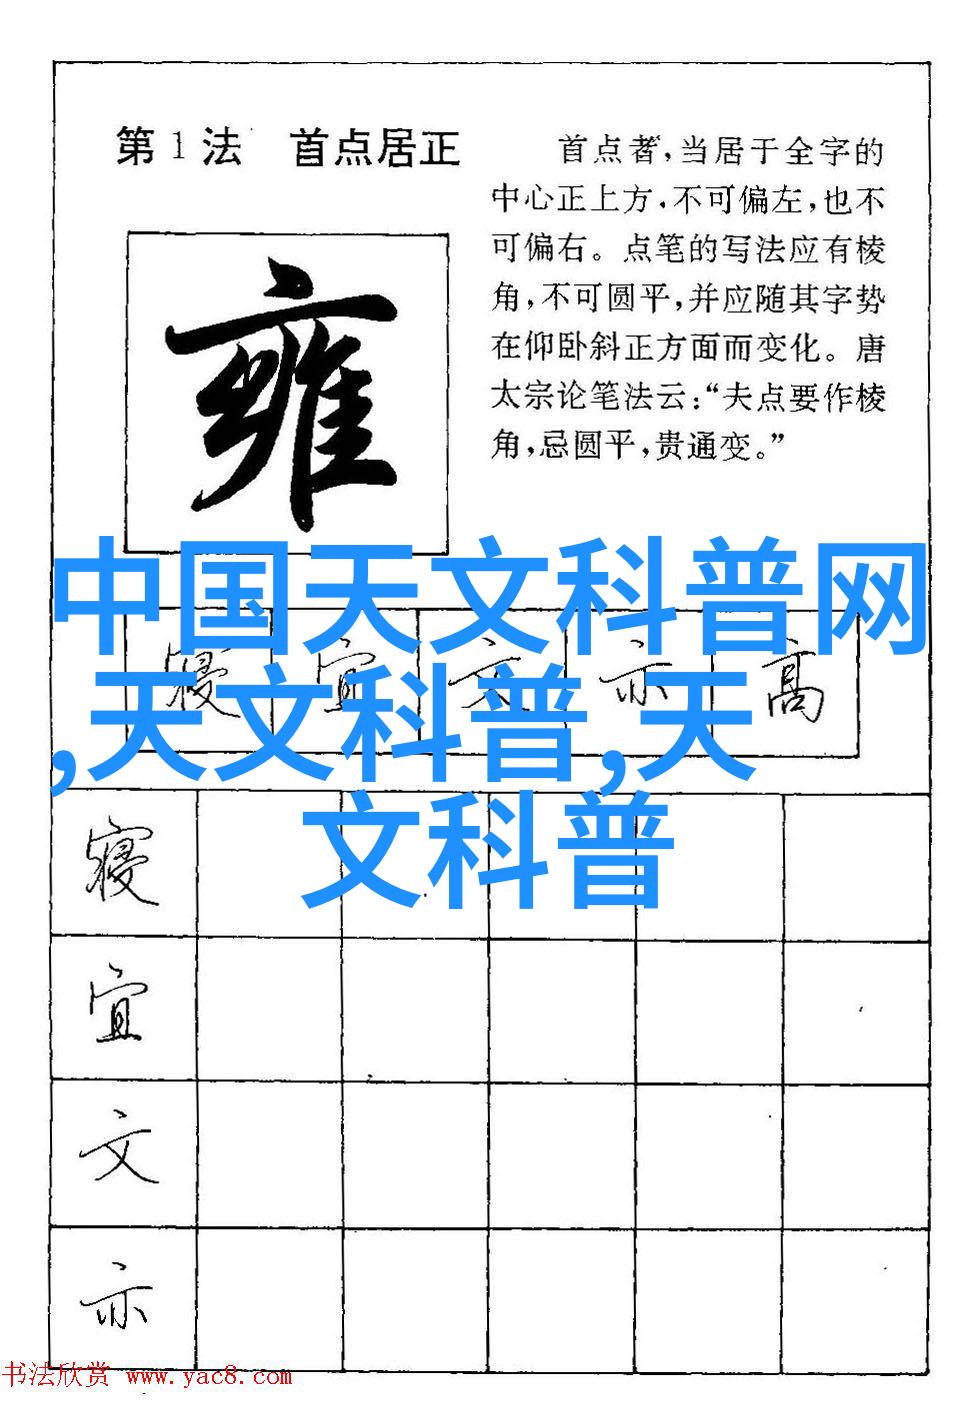 第1法 首点居正
首点著,当居于全字的
中心正上方,不可偏左,也不
可偏右。点笔的写法应有棱
角,不可圆平,并应随其字势
在仰卧斜正方面而变化。唐
太宗论笔法云:“夫点要作棱
角,忌圆平,贵通变。”
雍
中国天文科普网
,天文科普,天
文科普
寝 宜 文 亦 高
寝
宜
文
亦
书法欣赏 www.yac8.com